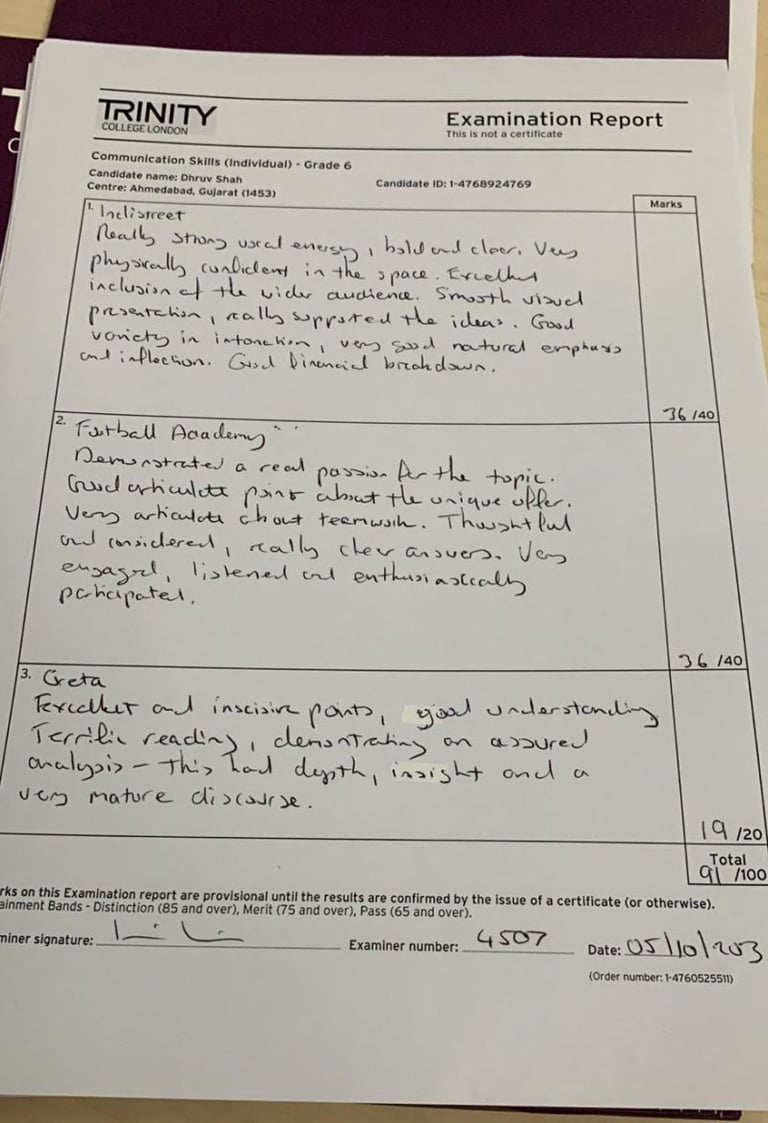 TRINITY
COLLEGE LONDON
Examination Report
This is not a certificate
Communication Skills (Individual) - Grade 6
Candidate name: Dhruv Shah
Candidate ID: 1-4768924769
Centre: Ahmedabad, Gujarat (1453)
Marks
1.
Really strong vocal energy, bold and clear. Very
physically confident in the space. Excellent
inclusion of the wider audience. Smooth visual
presentation, really supported the ideas. Good
variety in intonation, very good natural emphasis
and inflection. Good financial breakdown.
36 /40
2. Football Academy
Demonstrated a real passion for the topic.
Good articulate point about the unique offer.
Very articulate about teamwork. Thoughtful
and considered, really clear answers. Very
engaged, listened and enthusiastically
participated.
36 /40
3. Greta
Excellent and inscisive points, good understanding
Terrific reading, demonstrating an assured
analysis - This had depth, insight and a
very mature discourse.
19 /20
Total
91 /100
rks on this Examination report are provisional until the results are confirmed by the issue of a certificate (or otherwise).
ainment Bands - Distinction (85 and over), Merit (75 and over), Pass (65 and over).
miner signature:
Examiner number: 4507
Date: 05/10/203
(Order number: 1-4760525511)